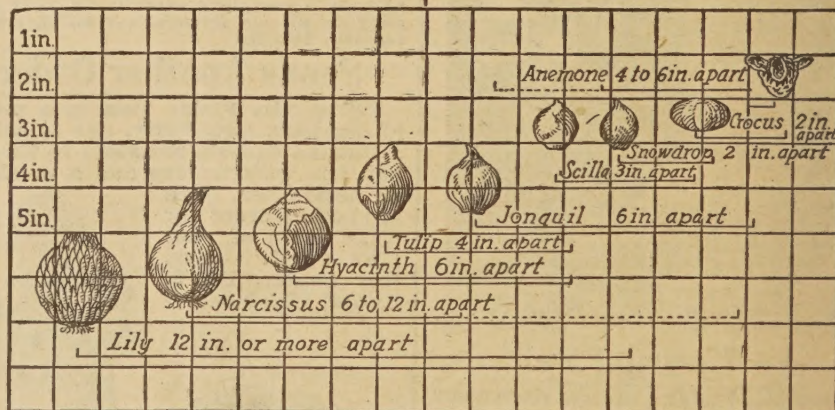 1in.
2in.
3in.
4in.
5in.
Anemone 4 to 6in. apart
Crocus 2in.
apart
Snowdrop, 2 in. apart
Scilla 3in. apart
Jonquil 6in. apart
Tulip 4 in. apart
Hyacinth 6in. apart
Narcissus 6 to 12 in. apart
Lily 12 in. or more apart